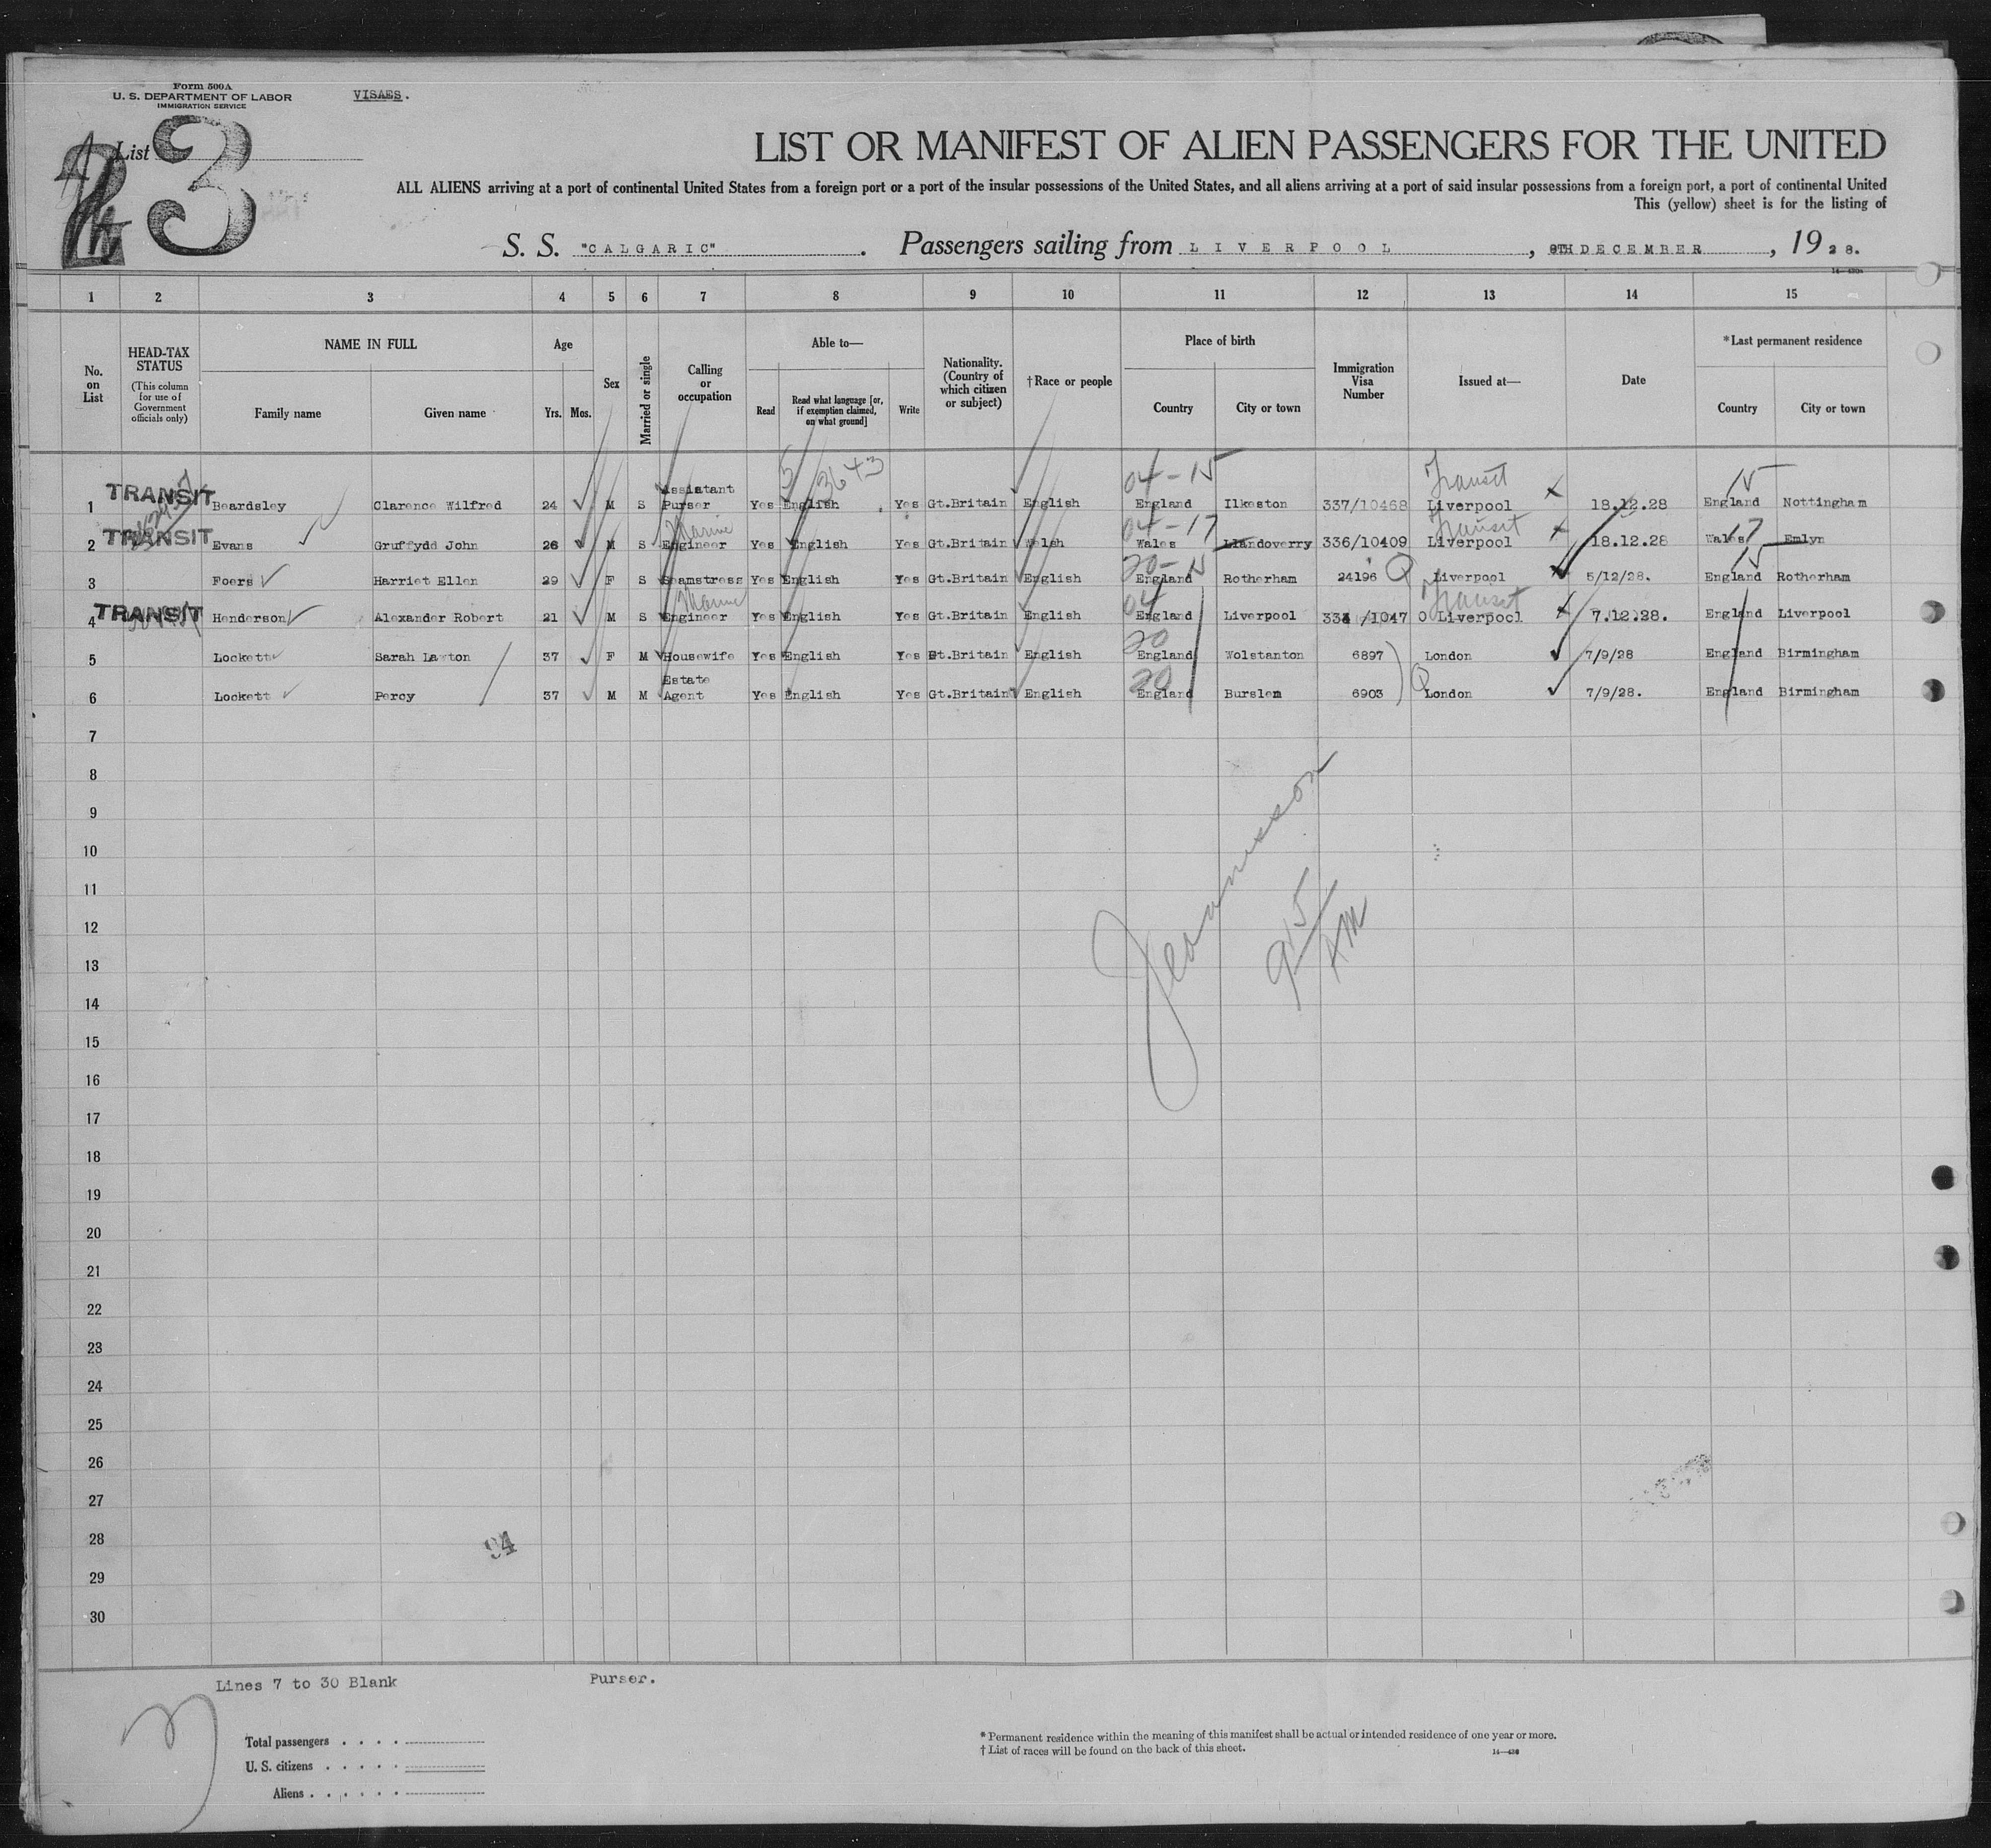 Form 500A
U. S. DEPARTMENT OF LABOR
IMMIGRATION SERVICE
VISAES.
List 3
LIST OR MANIFEST OF ALIEN PASSENGERS FOR THE UNITED
ALL ALIENS arriving at a port of continental United States from a foreign port or a port of the insular possessions of the United States, and all aliens arriving at a port of said insular possessions from a foreign port, a port of continental United
This (yellow) sheet is for the listing of
S. S. "CALGARIC". Passengers sailing from LIVERPOOL, 8TH DECEMBER, 1928.
14—430a
1 2 3 4 5 6 7 8 9 10 11 12 13 14 15
No. on List
HEAD-TAX STATUS
(This column for use of Government officials only)
NAME IN FULL
Family name
Given name
Age
Yrs. Mos.
Sex
Married or single
Calling or occupation
Able to—
Read
Read what language [or, if exemption claimed, on what ground]
Write
Nationality. (Country of which citizen or subject)
† Race or people
Place of birth
Country
City or town
Immigration Visa Number
Issued at—
Date
* Last permanent residence
Country
City or town
5 3643 04-15 Transit 15
1 TRANSIT Beardsley Clarence Wilfred 24 M S Assistant Purser Yes English Yes Gt.Britain English England Ilkeston 337/10468 Liverpool 18.12.28 England Nottingham
Marine 04-17 Transit 17
2 TRANSIT Evans Gruffydd John 26 M S Engineer Yes English Yes Gt.Britain Welsh Wales Llandoverry 336/10409 Liverpool 18.12.28 Wales Emlyn
20-15 15
3 Foers Harriet Ellen 29 F S Seamstress Yes English Yes Gt.Britain English England Rotherham 24196 Q Liverpool 5/12/28. England Rotherham
Marine 04 Transit
4 TRANSIT Henderson Alexander Robert 21 M S Engineer Yes English Yes Gt.Britain English England Liverpool 334/1047 0 Liverpool 7.12.28. England Liverpool
20
5 Lockett Sarah Lawton 37 F M Housewife Yes English Yes Gt.Britain English England Wolstanton 6897 London 7/9/28 England Birmingham
20
6 Lockett Percy 37 M M Estate Agent Yes English Yes Gt.Britain English England Burslem 6903 Q London 7/9/28. England Birmingham
7
8
9
10
11
12
13
14
15
16
17
18
19
20
21
22
23
24
25
26
27
28
29
30
9 15 AM
94
Lines 7 to 30 Blank
Purser.
Total passengers . . . .
U. S. citizens . . . . .
Aliens . . . . . .
* Permanent residence within the meaning of this manifest shall be actual or intended residence of one year or more.
† List of races will be found on the back of this sheet.
14—430